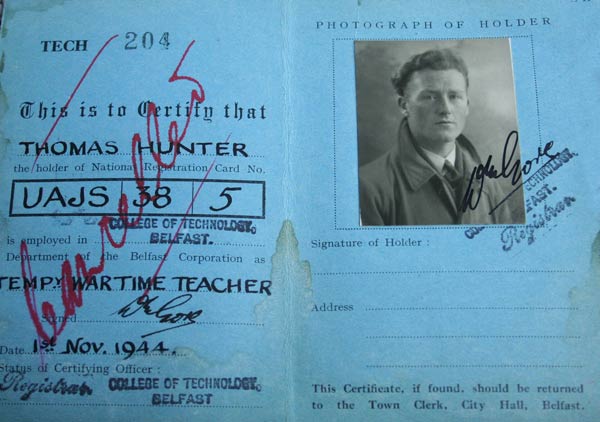 TECH 204
This is to Certify that
THOMAS HUNTER
the holder of National Registration Card No.
UAJS 38 5
COLLEGE OF TECHNOLOGY,
BELFAST.
is employed in
Department of the Belfast Corporation as
TEMPY WARTIME TEACHER
Signed
Date 1st Nov. 1944.
Status of Certifying Officer :
Registrar COLLEGE OF TECHNOLOGY,
BELFAST
Cancelled
PHOTOGRAPH OF HOLDER
TECHNOLOGY,
BELFAST.
Registrar
Signature of Holder :
Address
This Certificate, if found, should be returned
to the Town Clerk, City Hall, Belfast.